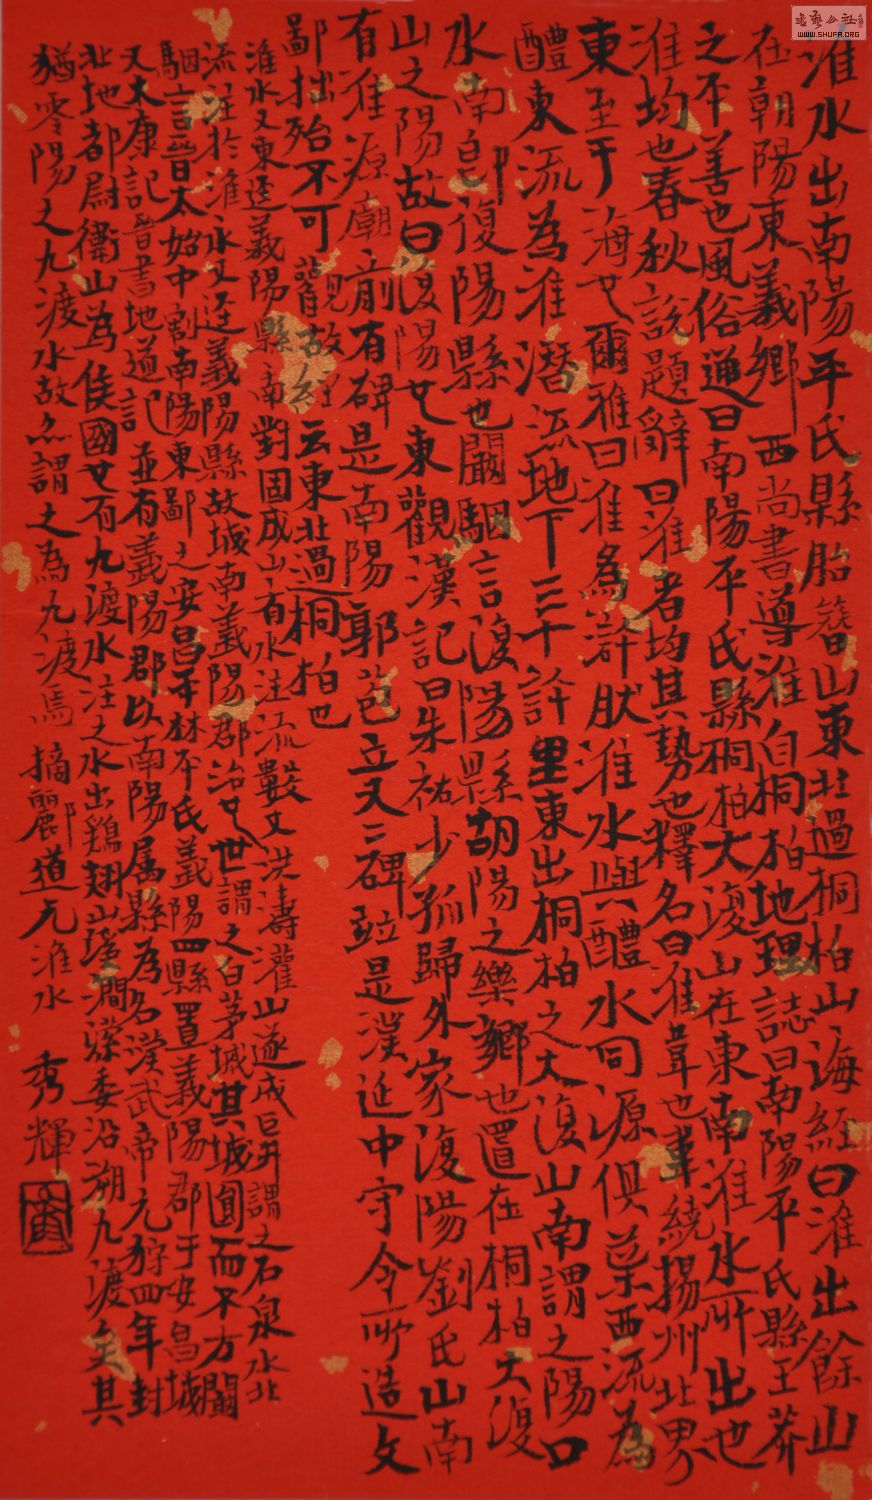 淮水出南陽平氏縣胎簪山東北過桐柏山海經曰淮出餘山
在朝陽東義鄉西尚書導淮自桐柏地理誌曰南陽平氏縣王莽
之平善也風俗通曰南陽平氏縣桐柏大復山在東南淮水所出也
淮均也春秋說題辭曰淮者均其勢也釋名曰淮韋也韋繞揚州北界
東至于海也爾雅曰淮為滸然淮水與醴水同源俱導西流為
醴東流為淮潛流地下三十許里東出桐柏之大復山南謂之陽口
水南即復陽縣也闞駰言復陽縣胡陽之樂鄉也置在桐柏大復
山之陽故曰復陽也東觀漢記曰朱祐少孤歸外家復陽劉氏山南
有淮源廟前有碑是南陽郭苞立又二碑竝是漢延中守令所造文
鄙拙殆不可觀故經云東北過桐柏也
淮水又東逕義陽縣南對固成山有水注流數丈洪濤灌山遂成巨井謂之石泉水北
流注於淮水又逕義陽縣故城南義陽郡治也世謂之白茅城其城圓而不方闞
駰言晉太始中割南陽東鄙之安昌平林平氏義陽四縣置義陽郡于安昌城
又太康記晉書地道記並有義陽郡以南陽屬縣為名漢武帝元狩四年封
北地都尉衛山為侯國也有九渡水注之水出鷄翅山溪澗瀠委沿溯九渡矣其
猶零陽之九渡水故亦謂之為九渡焉 摘酈道元淮水 秀輝
書藝公社
WWW.SHUFA.ORG